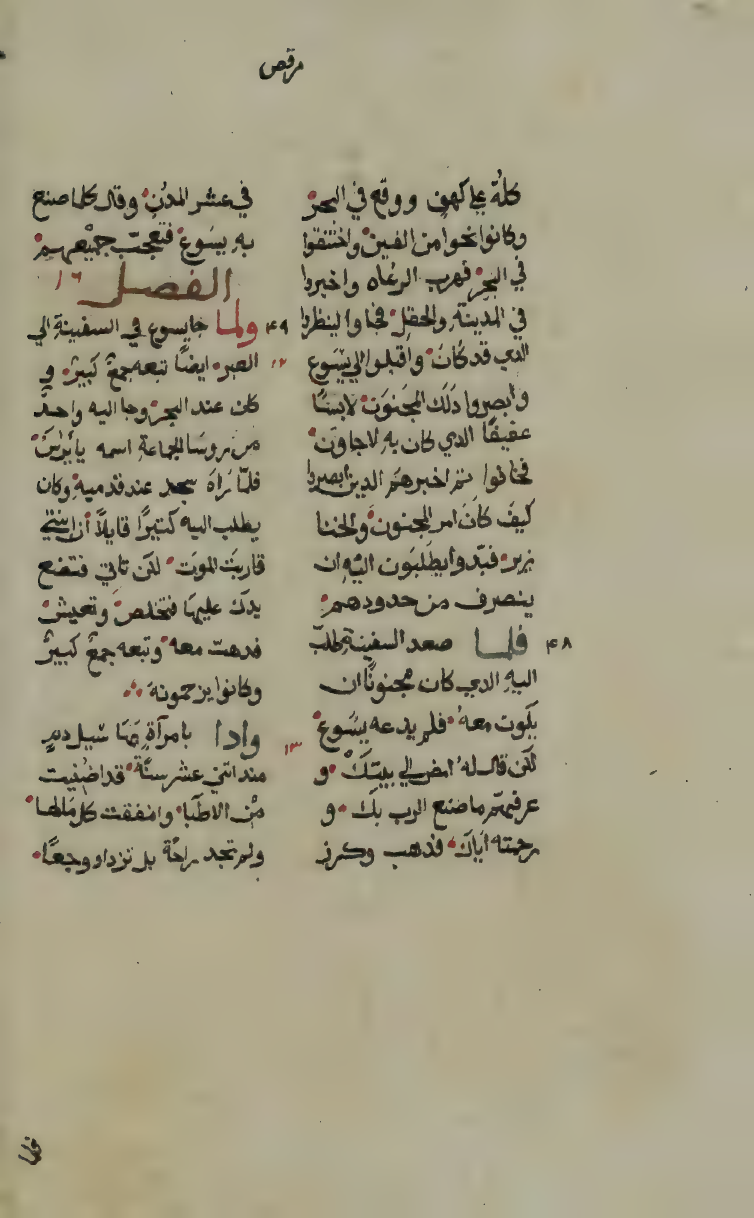 مرقص
كلّه علي كهف ووقع في البحر
وكانوا نحوا من الفين واختنقوا
في البحر فهرب الرعاه واخبروا
في المدينة والحقل فجاوا لينظروا
الدي قد كان واقبلوا الي يسوع
وابصروا دلك المجنون لابسًا
عفيفًا الدي كان به لاجاون
فخافوا ثم اخبرهم الدين ابصروا
كيف كان امر المجنون والخنا
زير فبدوا يطلبون اليه ان
ينصرف من حدودهم
۴۸ فلما صعد السفينة طلب
اليه الدي كان مجنونًا ان
يكون معه فلم يدعه يسوع
لكن قال له امض الي بيتك و
عرفهم ما صنع الرب بك و
رحمته اياك فدهب وكرز
في عشر المدن وقال كلما صنع
به يسوع فتعجب جميعهم
الفصل ١٦
۴۹ ولما جا يسوع في السفينة الي
١٢ العبر ايضًا تبعه جمع كبير و
كان عند البحر وجا اليه واحد
من روسا الجماعة اسمه يايرس
فلما راه سجد عند قدميه وكان
يطلب اليه كتيرًا قايلًا ان ابنتي
قاربت الموت لكن تاتي فتضع
يدك عليها فتخلص وتعيش
فدهب معه وتبعه جمع كبير
وكانوا يزحمونه
وادا بامرآة بها سيل دم
١٣ مند اتني عشر سنة قد اضنيت
من الاطبا وانفقت كل مالها
ولم تجد راحة بل تزداد وجعًا
فلما